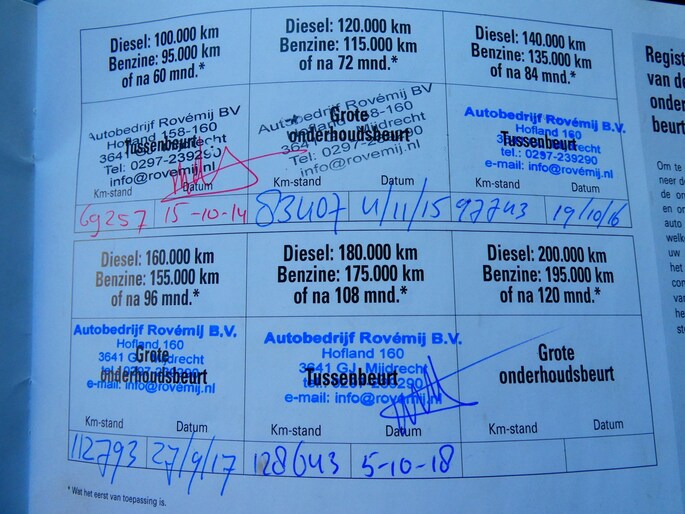 Diesel: 100.000 km
Benzine: 95.000 km
of na 60 mnd.*
Autobedrijf Rovémij BV
Hofland 158-160
Tussenbeurt
3641 Mijdrecht
Tel: 0297-239290
info@rovemij.nl
Km-stand Datum
69257 15-10-14
Diesel: 120.000 km
Benzine: 115.000 km
of na 72 mnd.*
Autobedrijf Rovémij BV
Grote
Hofland 158-160
onderhoudsbeurt
3641 Mijdrecht
Tel: 0297-239290
info@rovemij.nl
Km-stand Datum
83407 4/11/15
Diesel: 140.000 km
Benzine: 135.000 km
of na 84 mnd.*
Autobedrijf Rovémij B.V.
Hofland 160
Tussenbeurt
tel.: 0297-239290
e-mail: info@rovemij.nl
Km-stand Datum
97743 19/10/16
Diesel: 160.000 km
Benzine: 155.000 km
of na 96 mnd.*
Autobedrijf Rovémij B.V.
Hofland 160
Grote
3641 GJ Mijdrecht
onderhoudsbeurt
tel.: 0297-239290
e-mail: info@rovemij.nl
Km-stand Datum
112793 27/9/17
Diesel: 180.000 km
Benzine: 175.000 km
of na 108 mnd.*
Autobedrijf Rovémij B.V.
Hofland 160
3641 GJ Mijdrecht
Tussenbeurt
tel.: 0297-239290
e-mail: info@rovemij.nl
Km-stand Datum
128643 5-10-18
Diesel: 200.000 km
Benzine: 195.000 km
of na 120 mnd.*
Grote
onderhoudsbeurt
Km-stand Datum
* Wat het eerst van toepassing is.
Regist
van de
onder
beurt
Om te
neer d
de on
en o
auto
welk
uw
het
con
van
he
st